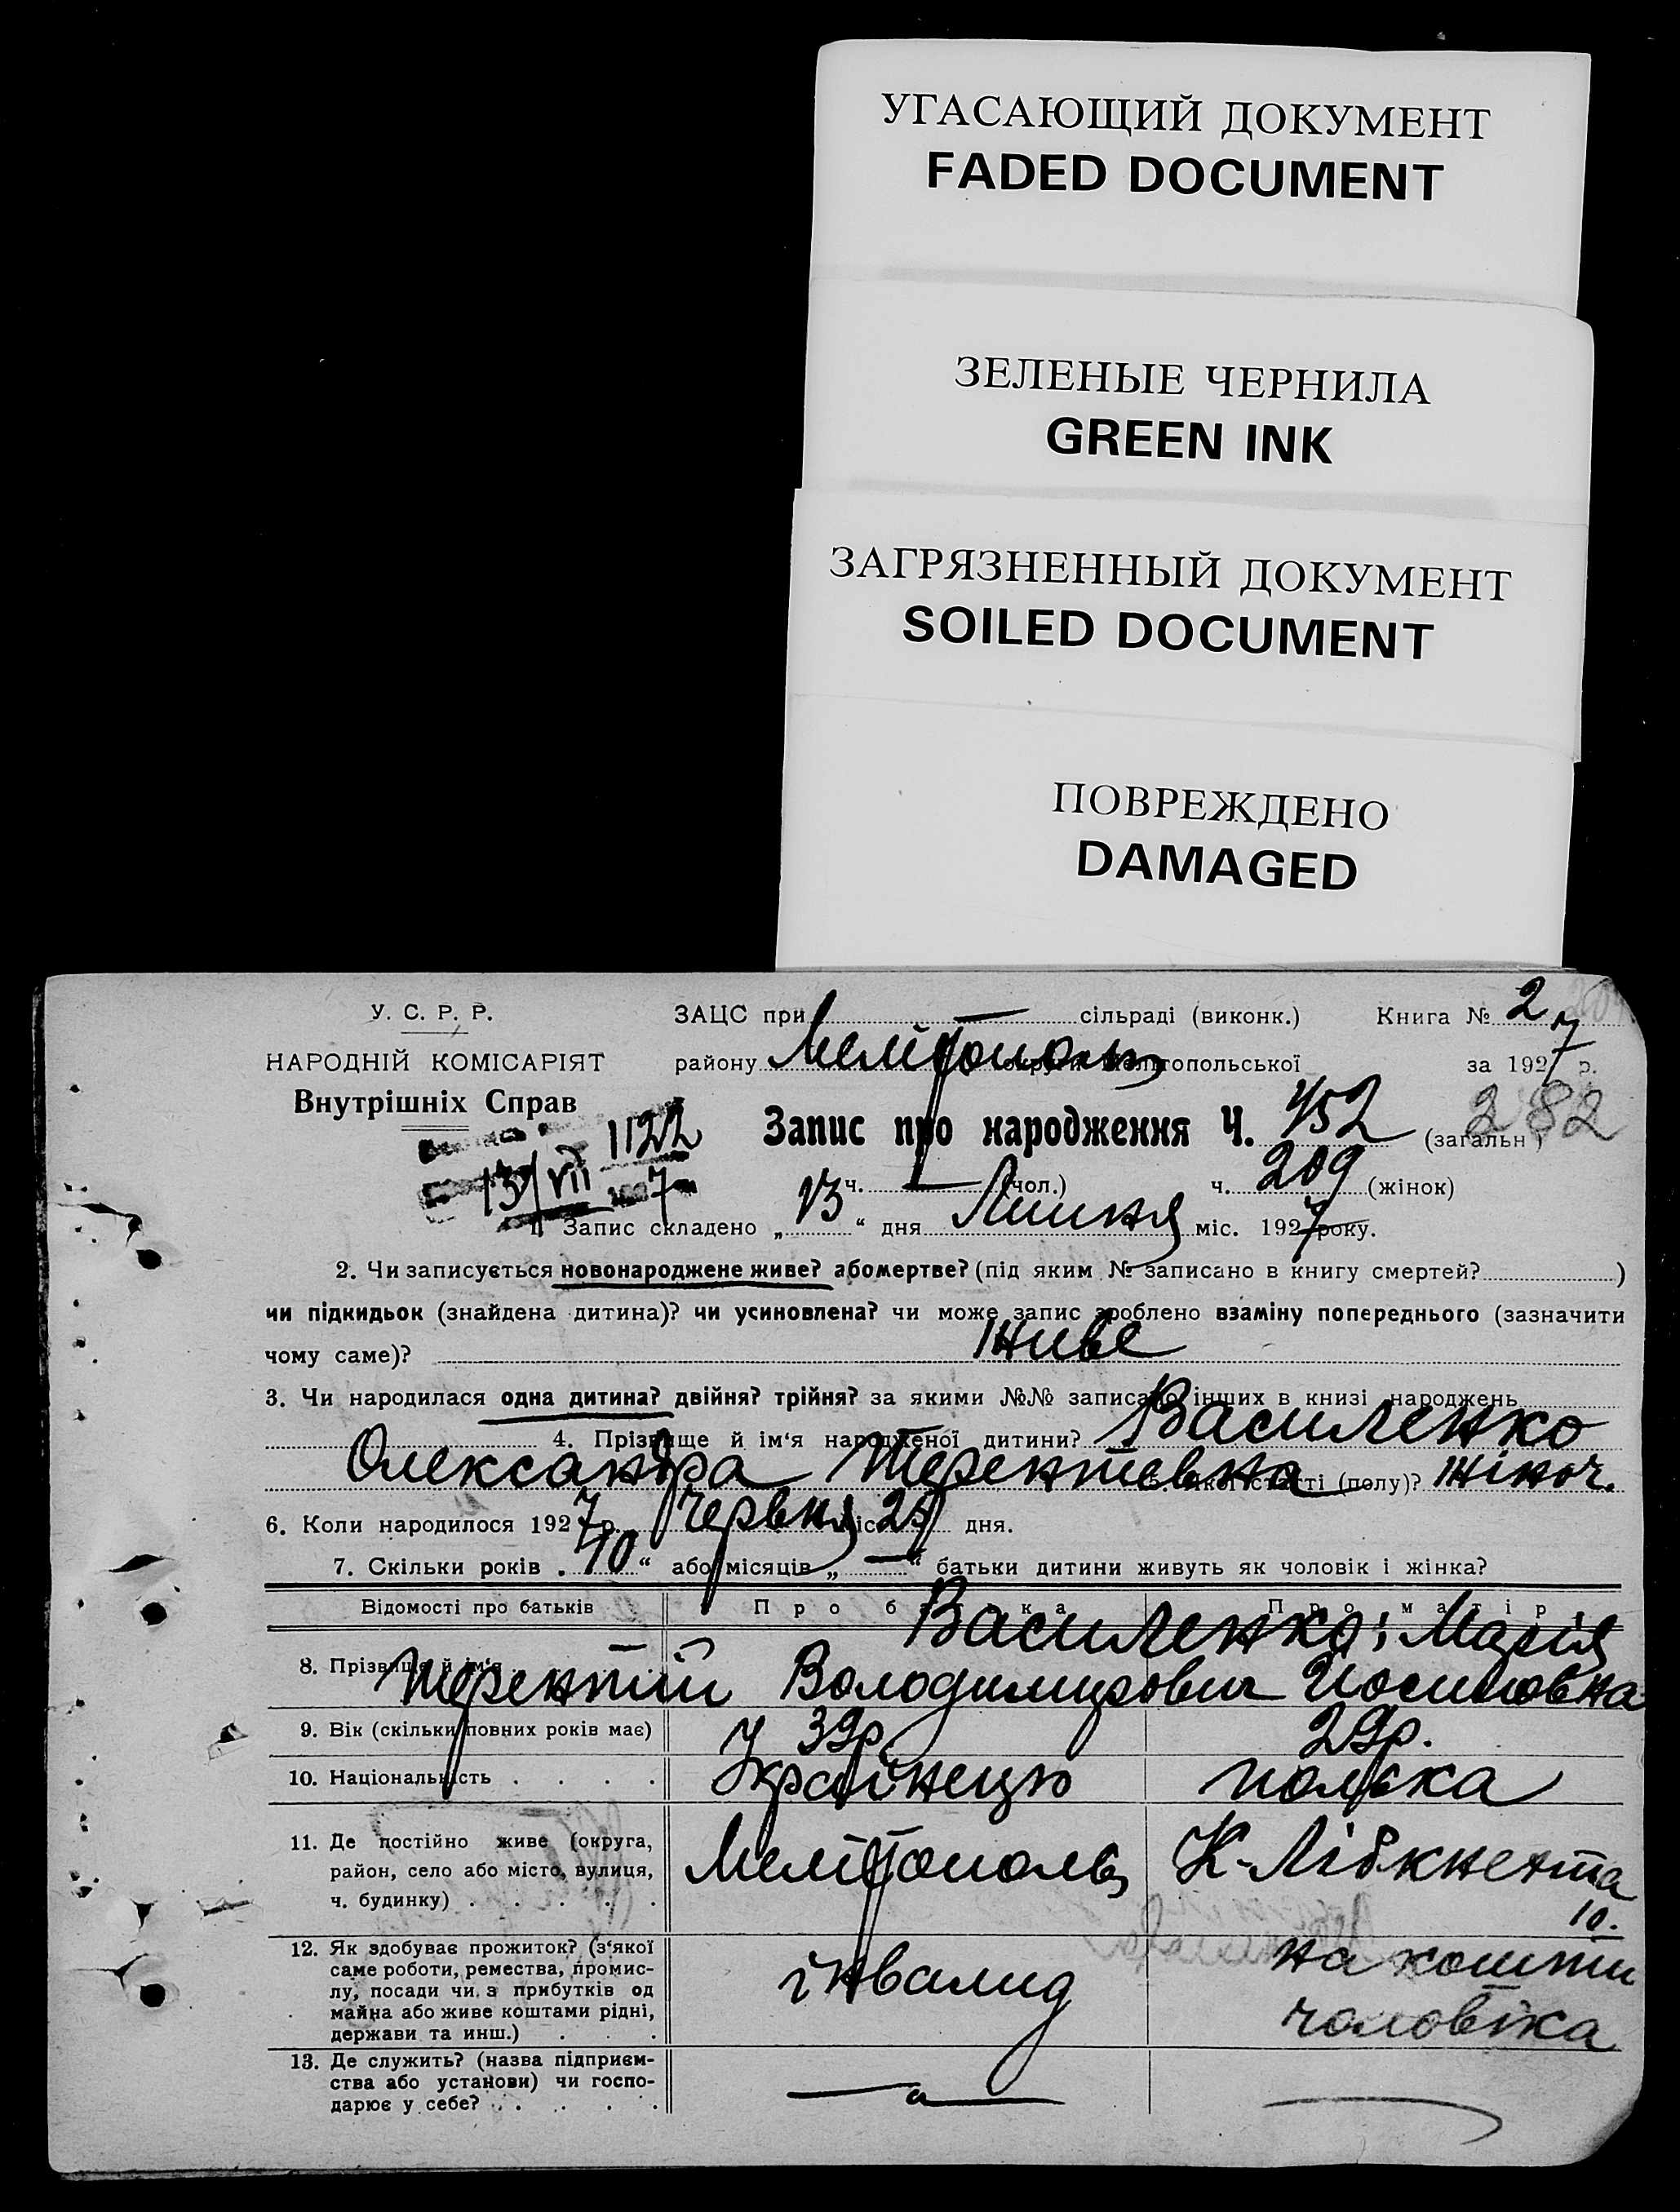 УГАСАЮЩИЙ ДОКУМЕНТ
FADED DOCUMENT
ЗЕЛЕНЫЕ ЧЕРНИЛА
GREEN INK
ЗАГРЯЗНЕННЫЙ ДОКУМЕНТ
SOILED DOCUMENT
ПОВРЕЖДЕНО
DAMAGED
У. С. Р. Р.
ЗАЦС при — сільраді (виконк.) Книга № 2
НАРОДНІЙ КОМІСАРІЯТ
району Мелітополь округи Мелітопольської за 1927 р.
Внутрішніх Справ
1122
13/VII 7
Запис про народження Ч. 452 (загальн) 282
ч. — (чол.) ч. 209 (жінок)
1. Запис складено „13“ дня Липня міс. 1927 року.
2. Чи записується новонароджене живе? або мертве? (під яким № записано в книгу смертей? )
чи підкидьок (знайдена дитина)? чи усиновлена? чи може запис зроблено взаміну попереднього (зазначити
чому саме)? Живе
3. Чи народилася одна дитина? двійня? трійня? за якими №№ записано інших в книзі народжень
4. Прізвище й ім‘я народженої дитини? Василенко
Олександра Терентевна 5. Якої статті (полу)? жіноч.
6. Коли народилося 1927 р. Червня міс. 25 дня.
7. Скільки років „10“ або місяців „—“ батьки дитини живуть як чоловік і жінка?
Відомості про батьків Про батька Про матір
8. Прізвище й ім‘я Василенко; Марія
Терентій Володимирович Йосиповна
9. Вік (скільки повних років має) 39р. 29р.
10. Національність . . . . Українець полька
11. Де постійно живе (округа,
район, село або місто, вулиця,
ч. будинку) . . . . .
Мелітополь К-Лібкнехта
10.
12. Як здобуває прожиток? (з‘якої
саме роботи, ремества, промис-
лу, посади чи з прибутків од
майна або живе коштами рідні,
держави та инш.) . . .
інвалид на кошти
чоловіка
13. Де служить? (назва підприєм-
ства або установи) чи госпо-
дарює у себе? . . . . .
—